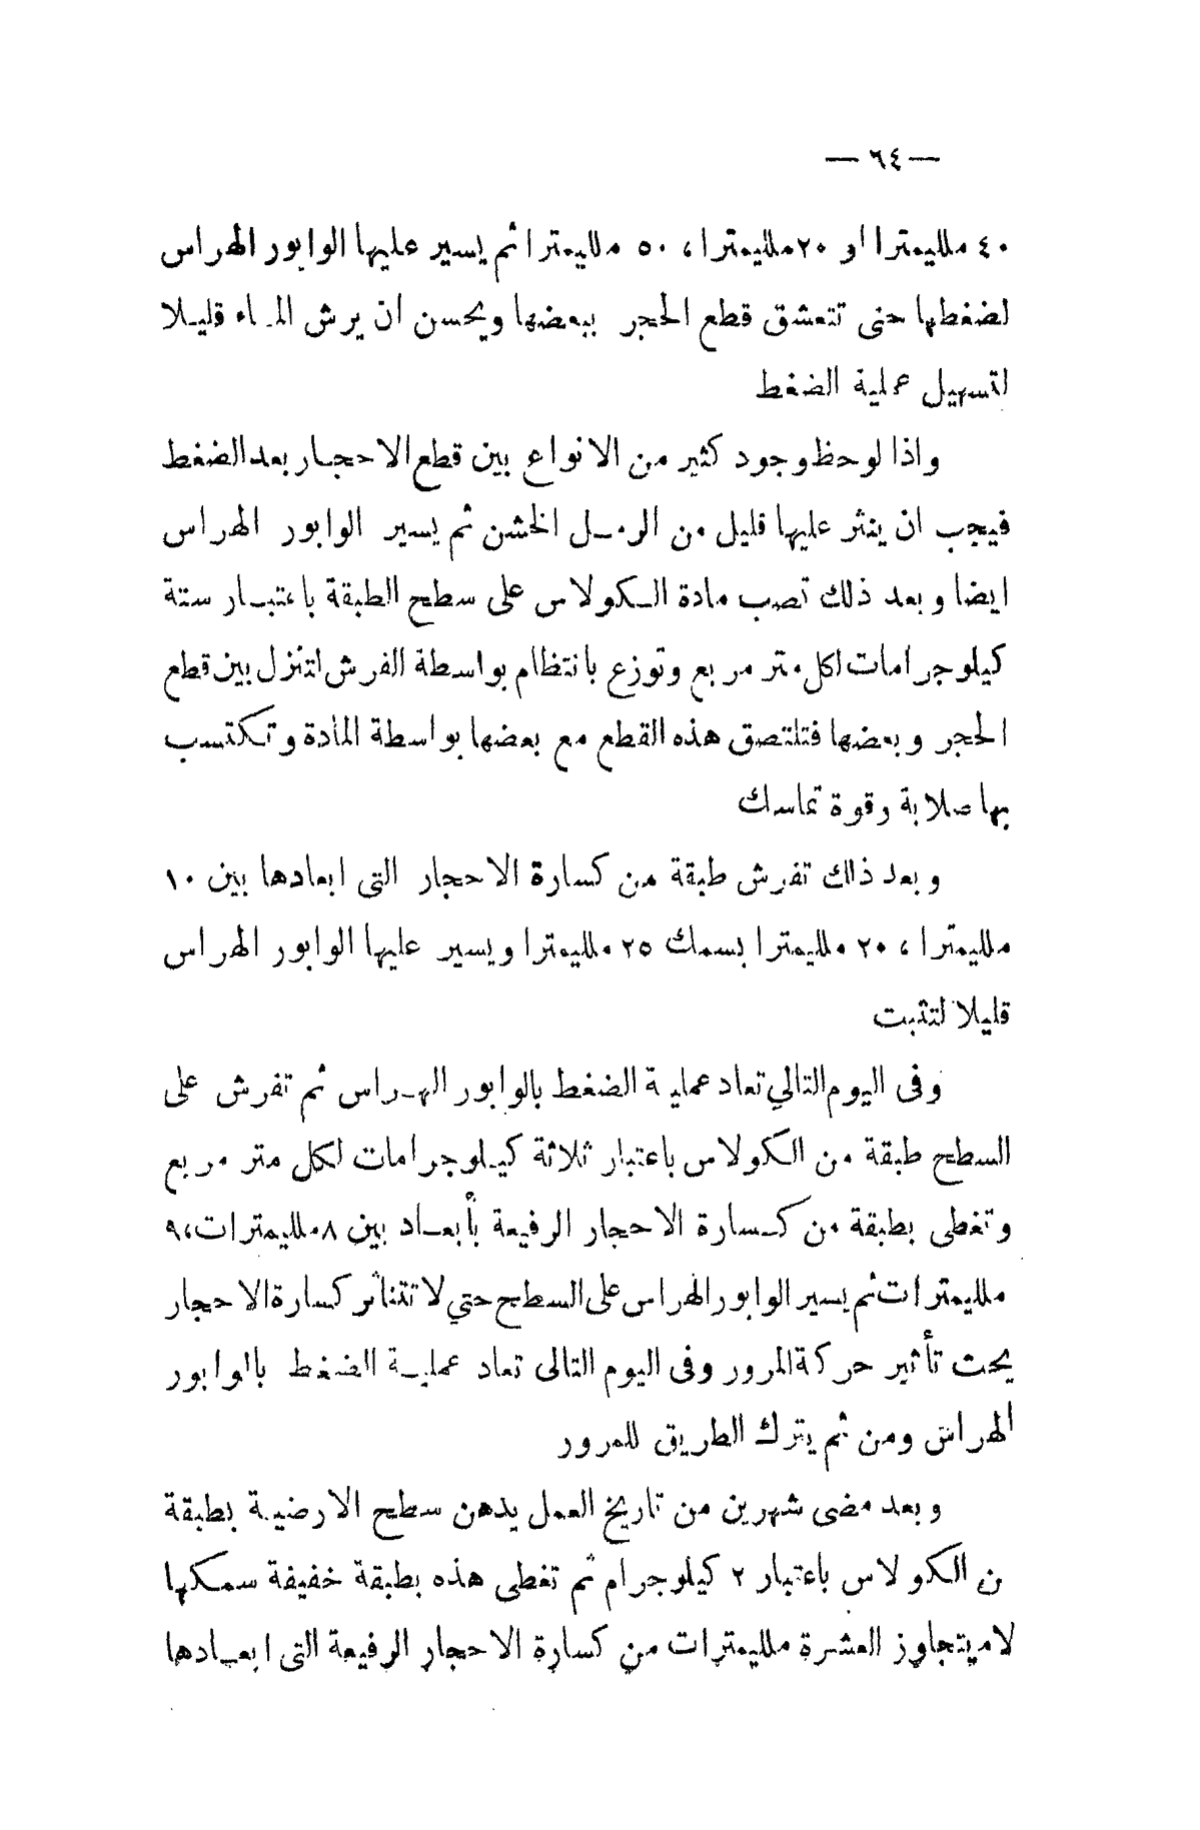 — ٦٤ —
٤٠ ملليمترا او ٢٠ملليمترا، ٥٠ ملليمترا ثم يسير عليها الوابور الهراس
لضغطها حتى تتعشق قطع الحجر ببعضها ويحسن ان يرش المـاء قليـلا
لتسهيل عملية الضغط
واذا لوحظ وجود كثير من الانواع بين قطع الاحجـار بعد الضغط
فيجب ان ينثر عليها قليل من الرمـل الخشن ثم يسير الوابور الهراس
ايضا وبعد ذلك تصب مادة الـكولاس على سطح الطبقة باعتبـار ستة
كيلوجرامات لكل متر مربع وتوزع بانتظام بواسطة الفرش لتنزل بين قطع
الحجر وبعضها فتلتصق هذه القطع مع بعضها بواسطة المادة وتـكتسب
بها صلابة وقوة تماسك
وبعد ذلك تفرش طبقة من كسارة الاحجار التى ابعادها بين ١٠
ملليمترا، ٢٠ ملليمترا بسمك ٢٥ ملليمترا ويسير عليها الوابور الهراس
قليلا لتثبت
وفى اليوم التالي تعاد عملية الضغط بالوابور الهـراس ثم تفرش على
السطح طبقة من الـكولاس باعتبار ثلاثة كيـلوجرامات لكل متر مربع
وتغطى بطبقة من كـسارة الاحجار الرفيعة بأبعـاد بين ٨ملليمترات،٩
ملليمترات ثم يسير الوابور الهراس على السطح حتي لا تتناثر كسارة الاحجار
بحت تأثير حركة المرور وفى اليوم التالى تعاد عمليـة الضغط بالوابور
الهراس ومن ثم يترك الطريق للمرور
وبعد مضى شهرين من تاريخ العمل يدهن سطح الارضيـة بطبقة
ن الكولاس باعتبار ٢ كيلوجرام ثم تغطى هذه بطبقة خفيفة سمكها
لامـيتجاوز العشرة ملليمترات من كسارة الاحجار الرفيعة التى ابعـادها